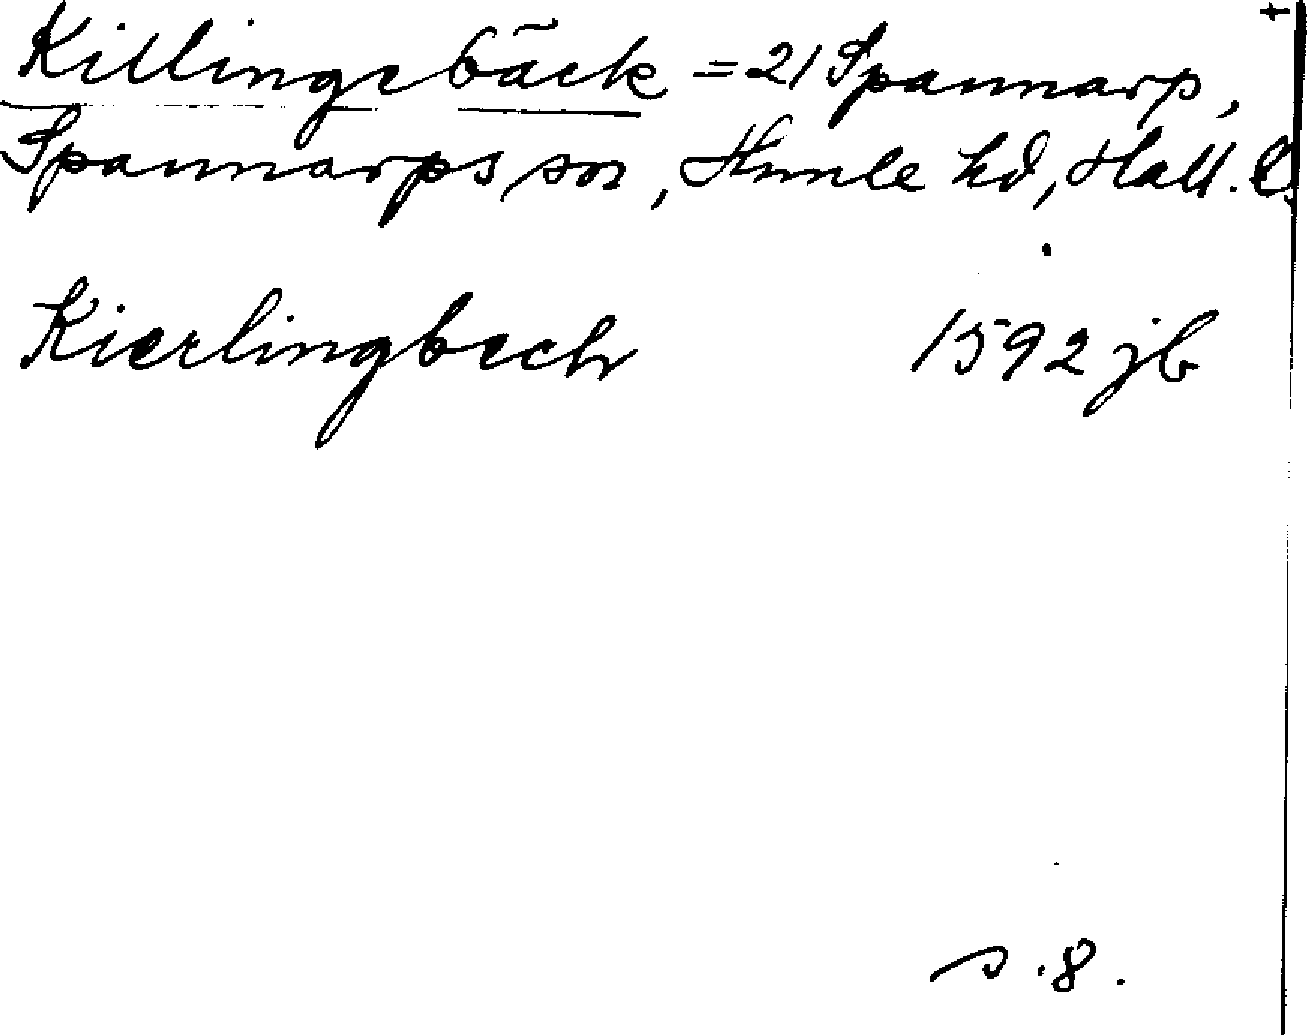 Killingebäck = 21 Spannarp,
Spannarps sn, Himle hd, Hall. l.
Kierlingbech 1592 jb
s. 8.